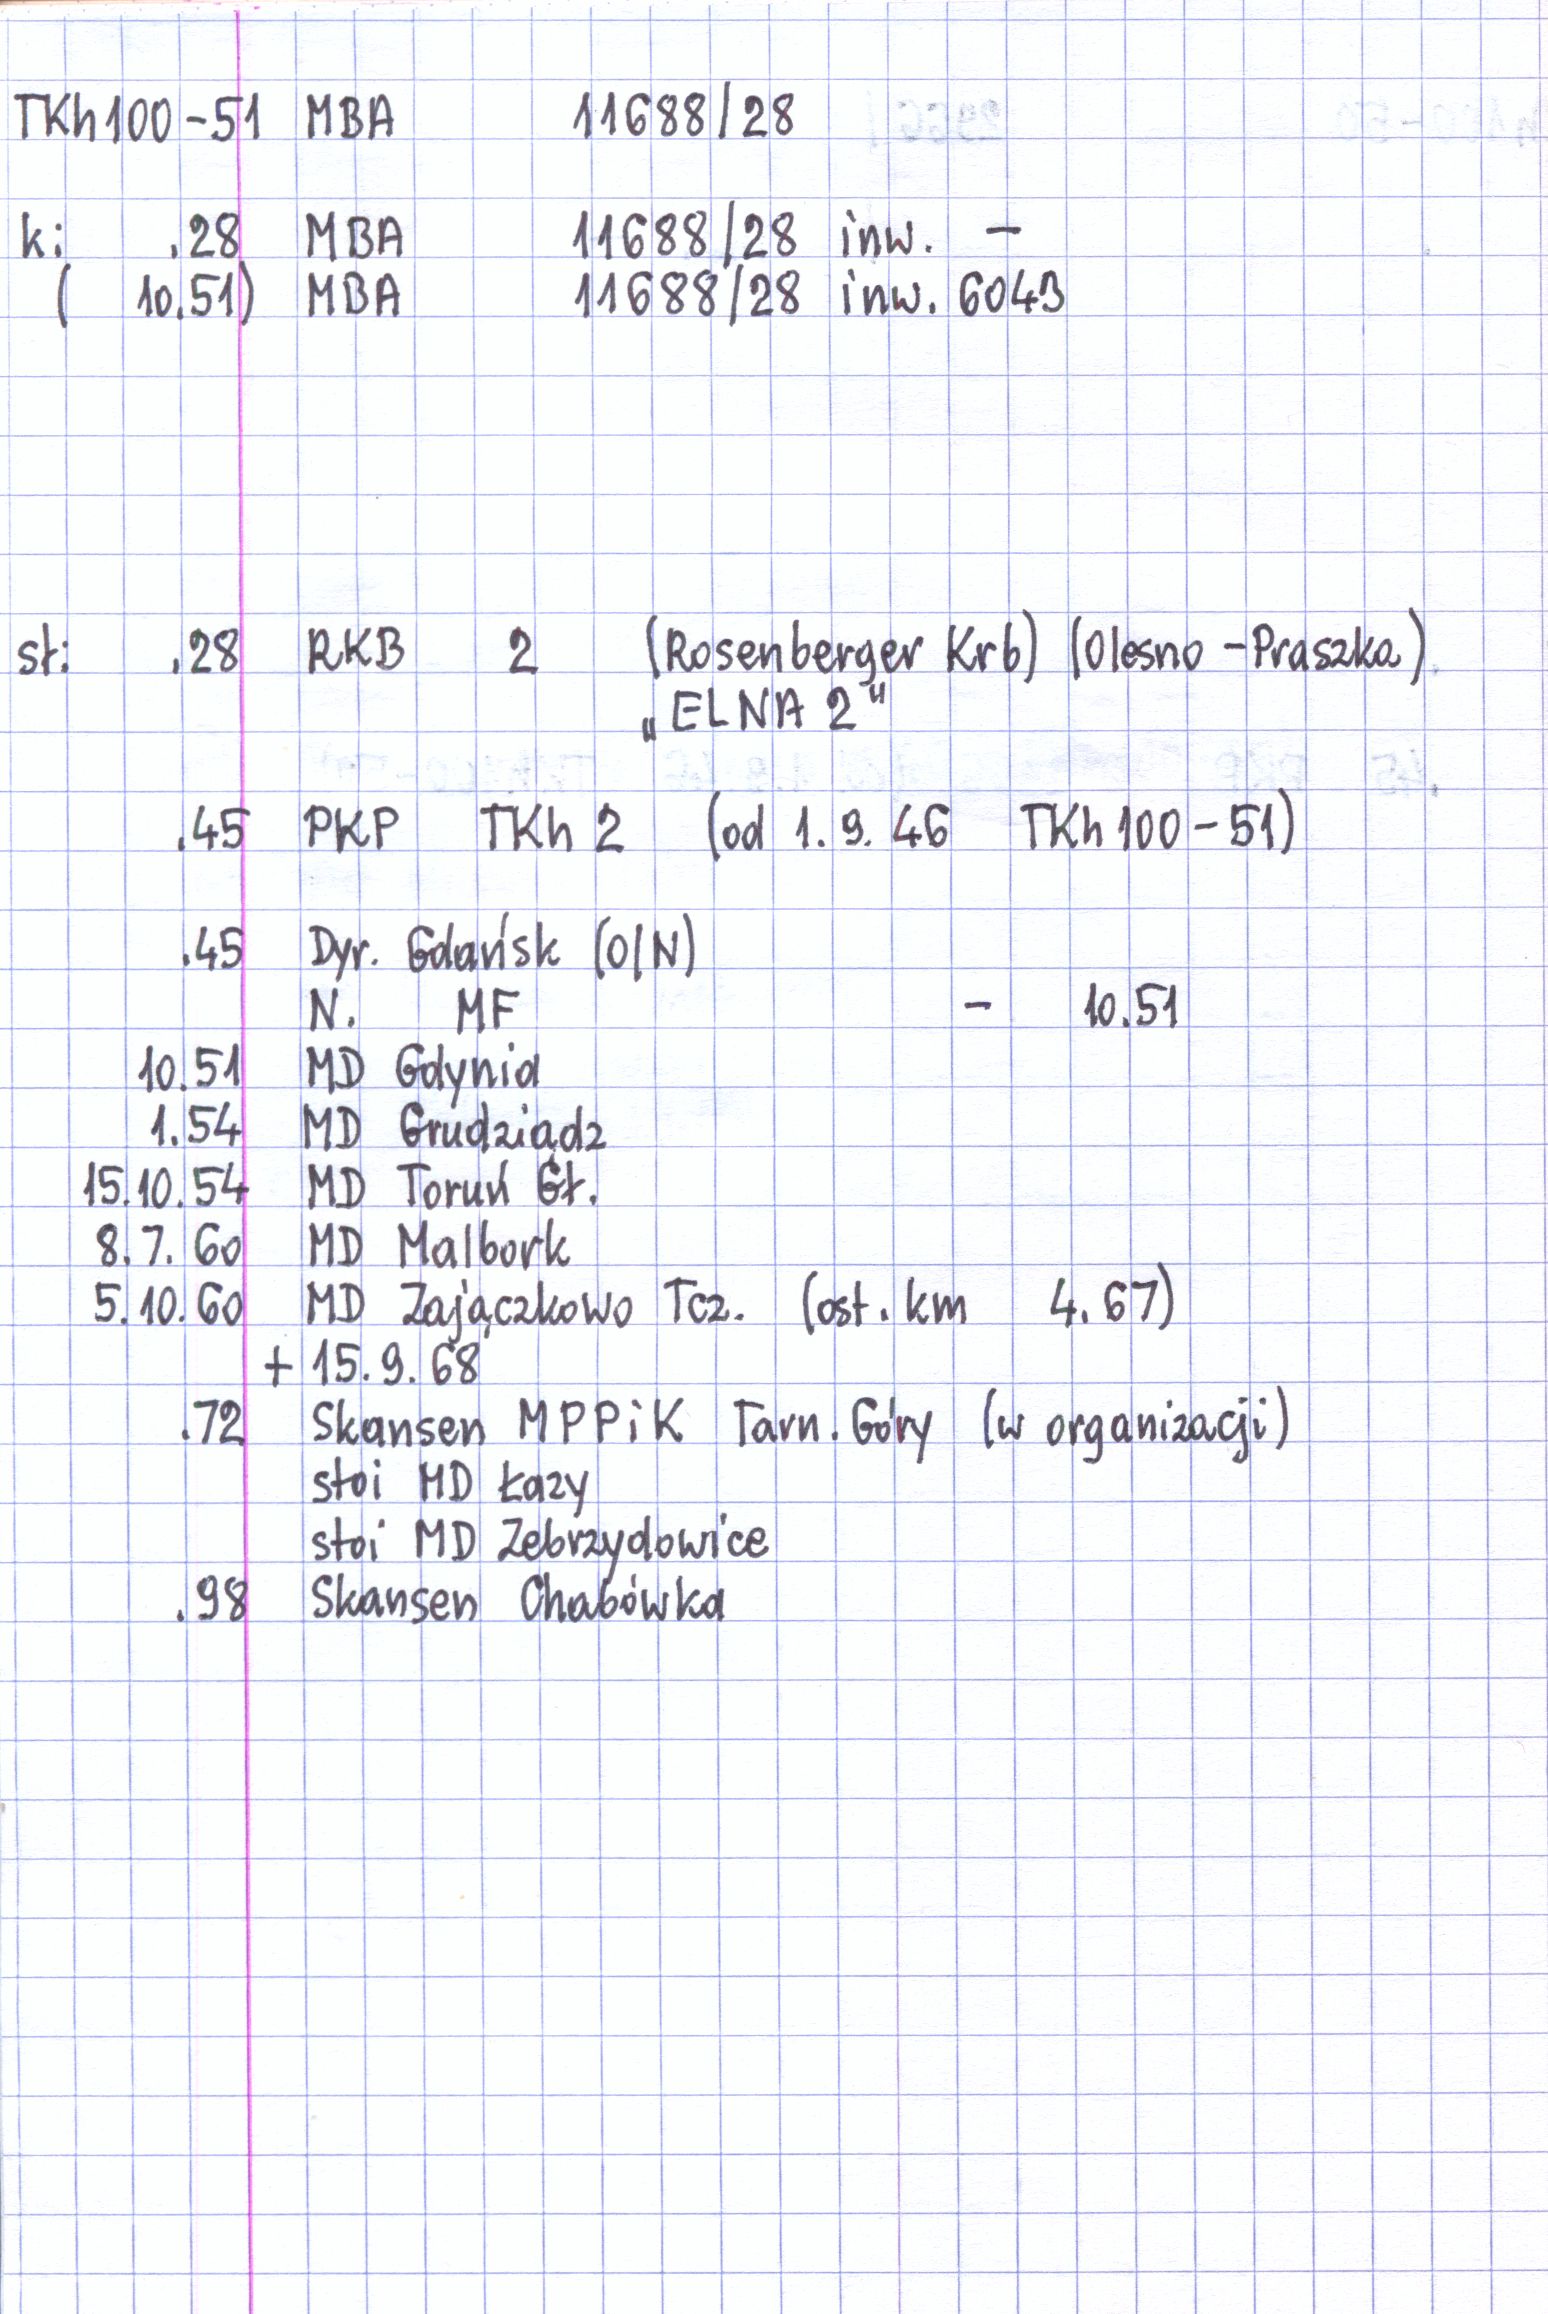 TKh100-51 MBA 11688/28
k: .28 MBA 11688/28 inw. -
( 10.51) MBA 11688/28 inw. 6043
st: .28 RKB 2 (Rosenberger Krb) (Olesno - Praszka)
„ELNA 2"
.45 PKP TKh 2 (od 1.9.46 TKh100-51)
.45 Dyr. Gdańsk (O/N)
N. MF - 10.51
10.51 MD Gdynia
1.54 MD Grudziądz
15.10.54 MD Toruń Gł.
8.7.60 MD Malbork
5.10.60 MD Zajączkowo Tcz. (ost. km 4.67)
+ 15.9.68
.72 Skansen MPPiK Tarn. Góry (w organizacji)
stoi MD Łazy
stoi MD Zebrzydowice
.98 Skansen Chabówka